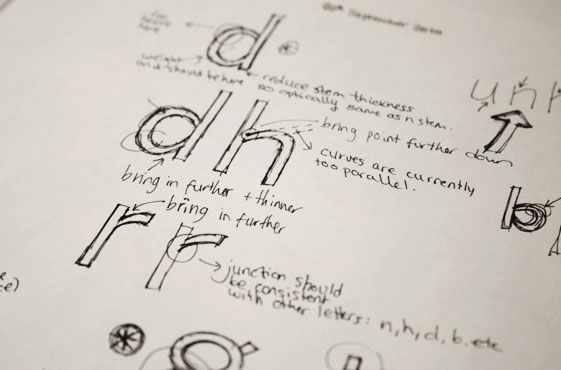 September 2010
d
weight
on d should be here
reduce stem thickness
so optically same as n stem.
un
dh
bring point further down
curves are currently
too parallel.
bring in further + thinner
bring in further
b
rr
junction should
be consistent
with other letters: n, h, d, b, etc
g